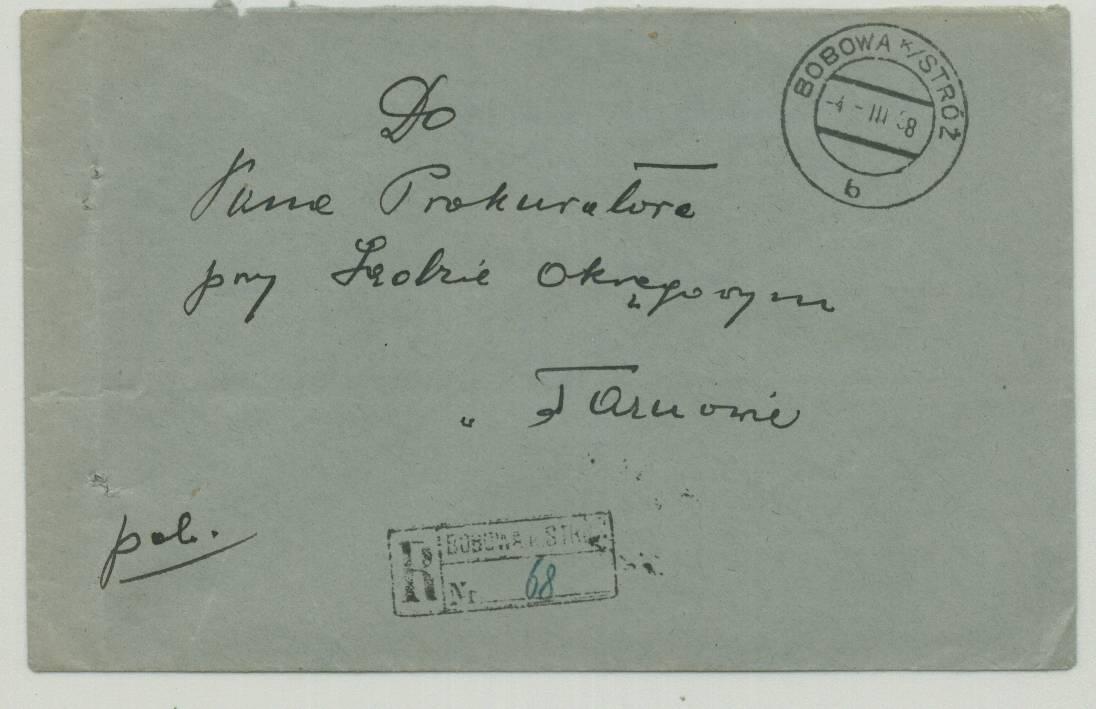 BOBOWA K/STRÓŻ
-4.-III 38
b
Do
Pana Prokuratora
przy Sądzie Okręgowym
w Tarnowie
pol.
R
BOBOWA K. STRÓŻ
Nr 68